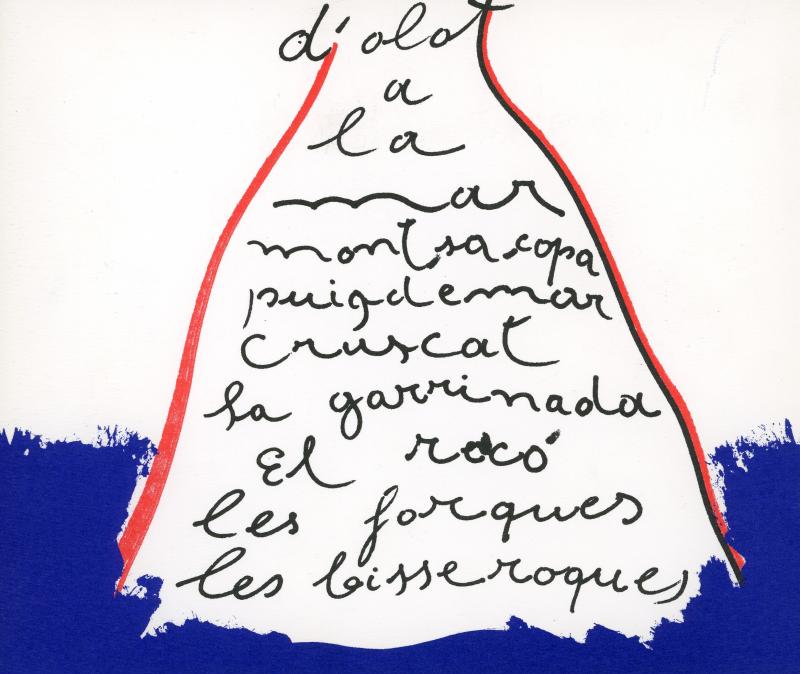 d'olot
a
la
mar
montsacopa
puigdemar
cruscat
la garrinada
El rocó
les forques
les bisseroques